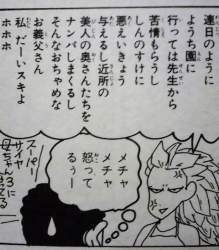 連日のように
ようち園に
行っては先生から
苦情もらうし
しんのすけに
悪えいきょう
与えるし近所の
美人の奥さんたちを
ナンパしまくるし
そんなおちゃめな
お義父さん
私 だーいスキよ
ホホホ
メチャ
メチャ
怒ってる
るぅー
スーパー
サイヤ
母ちゃん3に
なってる